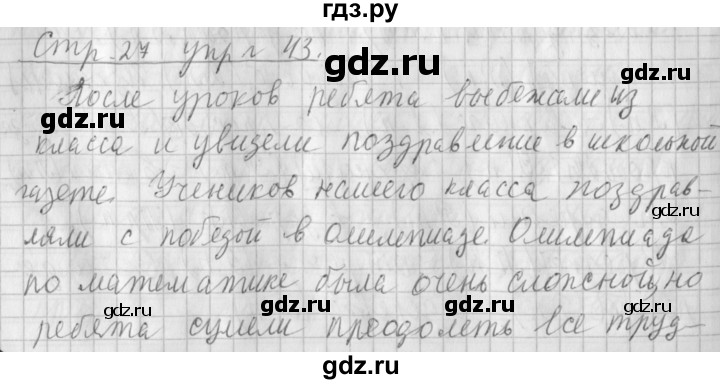 гдз.ру
Стр. 27 упр г 43.
После уроков ребята выбежали из
класса и увидели поздравление в школьной
газете. Учеников нашего класса поздрав-
ляли с победой в олимпиаде. Олимпиада
по математике была очень сложной, но
ребята сумели преодолеть все труд-
gdz.ru
gdz.ru
gdz.ru
gdz.ru
gdz.ru
gdz.ru
gdz.ru
gdz.ru
гдз.ру